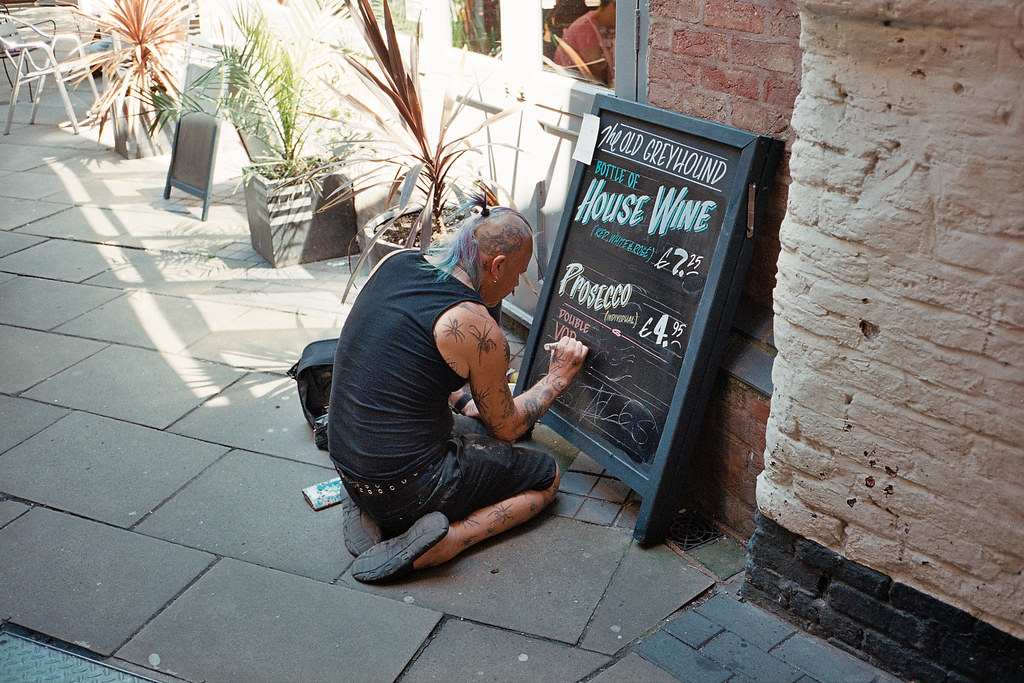 The OLD GREYHOUND
BOTTLE OF
HOUSE WINE
(RED, WHITE & ROSÉ) £7.25
PROSECCO
(INDIVIDUAL) £4.95
DOUBLE
VOD